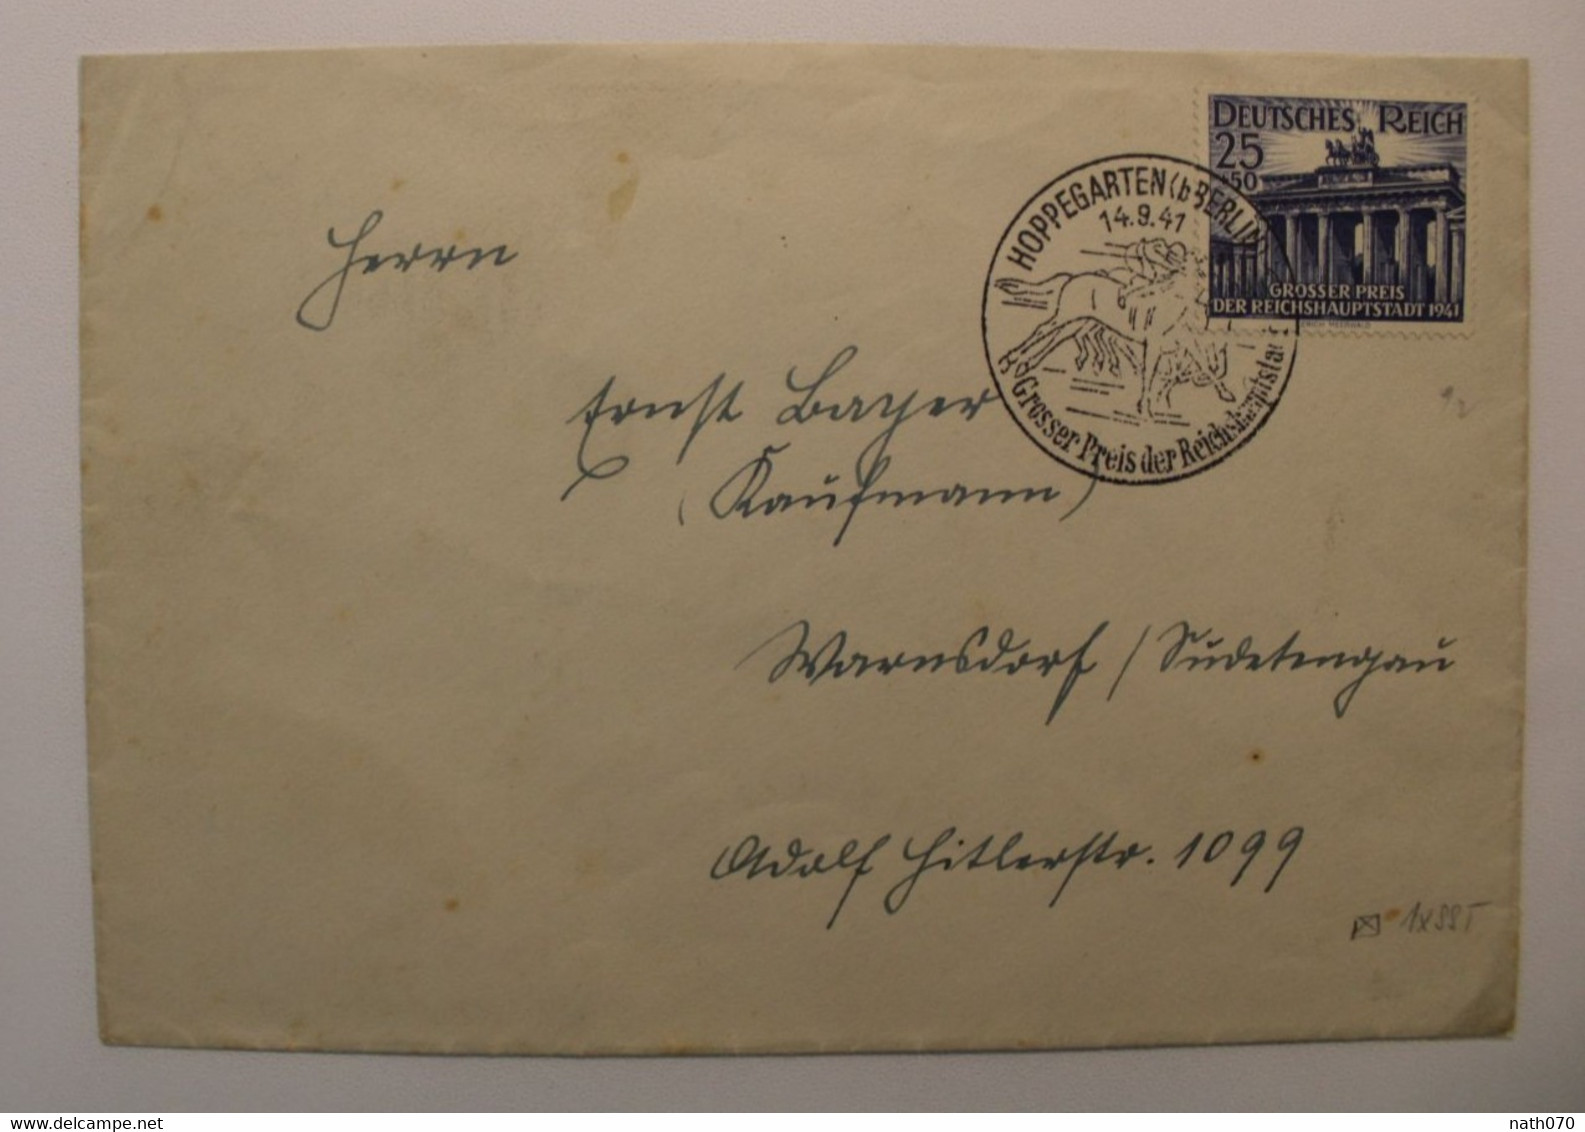 DEUTSCHES REICH
25
+50
GROSSER PREIS
DER REICHSHAUPTSTADT 1941
ERICH MEERWALD
HOPPEGARTEN (b BERLIN
14.9.41
Grosser Preis der Reichshauptsta
Herrn
Ernst Bayer
(Kaufmann)
Warnsdorf / Sudetengau
Adolf Hitlerstr. 1099
www.delcampe.net
nath070